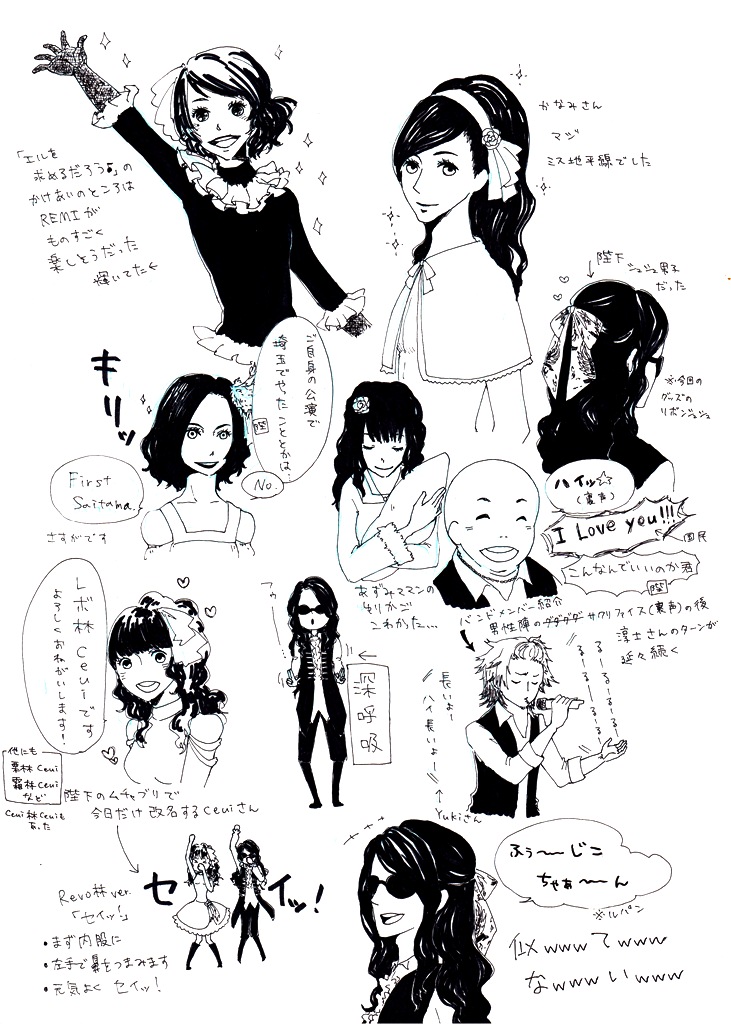 「エルを
求めるだろう♪」の
かけあいのところは
REMIが
ものすごく
楽しそうだった
輝いてた
かなみさん
マジ
ミス地平線でした
陛下
シュシュ男子
だった
※今回の
グッズの
リボンシュシュ
キリッ
ご自身の公演で
埼玉でやったこととかは…
陛
No.
First
Saitama.
さすがです
ハイッ☆
(裏声)
I Love you!!!
国民
こんなんでいいのか君
陛
あずみママンの
ゆりかご
こわかった…
バンドメンバー紹介
男性陣のダダダダサクリファイス(裏声)の後
淳士さんのターンが
延々続く
レボ林Ceuiです
よろしくおねがいします!
フゥー
深呼吸
長いよー
ハイ長いよー
るーるーるーるーるー
るーるーるーるー
Yukiさん
他にも
栗林Ceui
霜林Ceui
など
Ceui林Ceuiも
あった
陛下のムチャブリで
今日だけ改名するCeuiさん
Revo林ver.
「セイッ!」
・まず内股に
・左手で鼻をつまみます
・元気よく セイッ!
セイッ!
ふぅ〜〜じこ
ちゃぁ〜〜ん
※ルパン
似wwwてwww
なwwwいwww